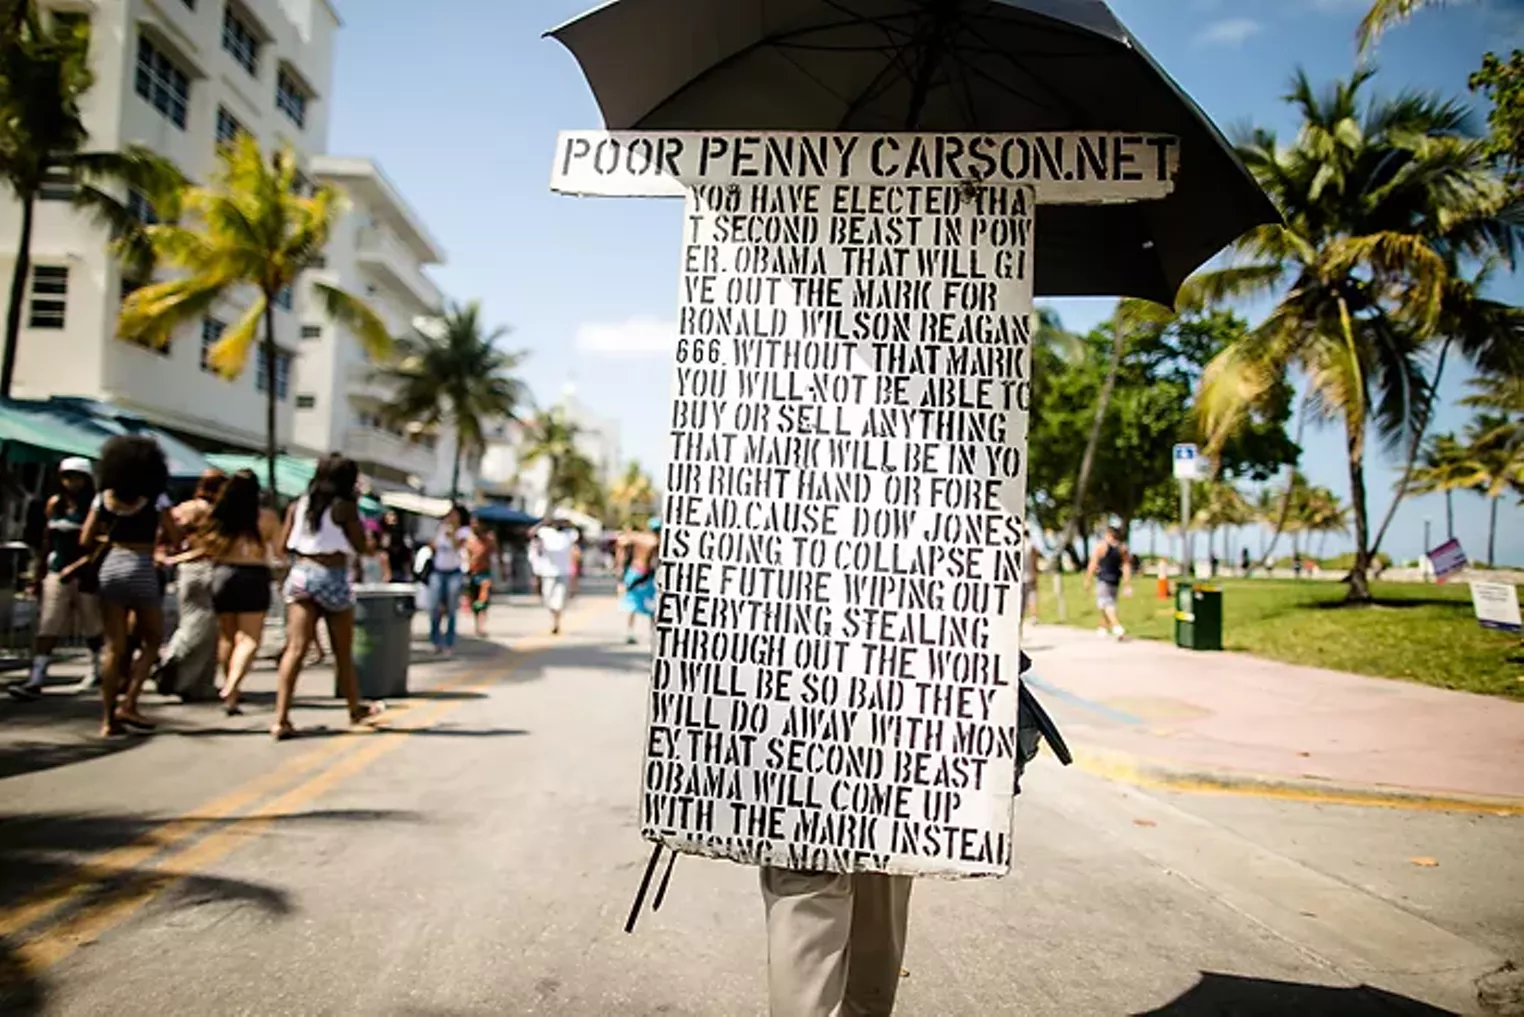 POOR PENNY CARSON.NET
YOU HAVE ELECTED THA
T SECOND BEAST IN POW
ER. OBAMA THAT WILL GI
VE OUT THE MARK FOR
RONALD WILSON REAGAN
666. WITHOUT THAT MARK
YOU WILL NOT BE ABLE TO
BUY OR SELL ANYTHING
THAT MARK WILL BE IN YO
UR RIGHT HAND OR FORE
HEAD. CAUSE DOW JONES
IS GOING TO COLLAPSE IN
THE FUTURE WIPING OUT
EVERYTHING STEALING
THROUGH OUT THE WORL
D WILL BE SO BAD THEY
WILL DO AWAY WITH MON
EY. THAT SECOND BEAST
OBAMA WILL COME UP
WITH THE MARK INSTEAD
OF USING MONEY